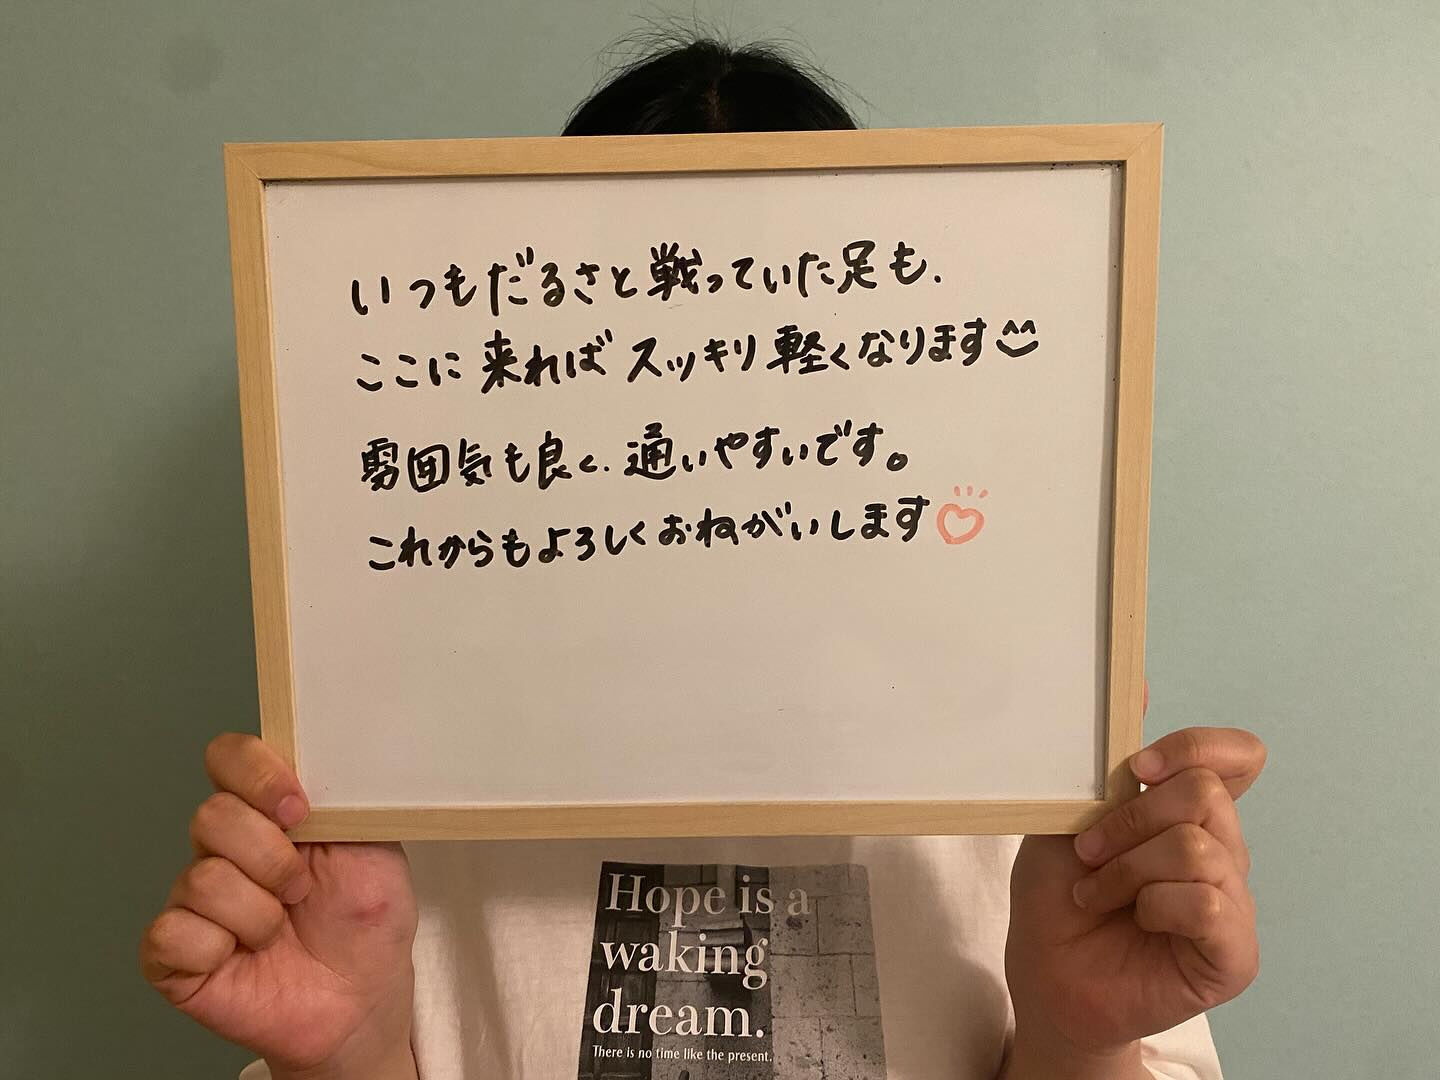 いつもだるさと戦っていた足も、
ここに来ればスッキリ軽くなります
雰囲気も良く、通いやすいです。
これからもよろしくおねがいします♡
Hope is a
waking
dream.
There is no time like the present.